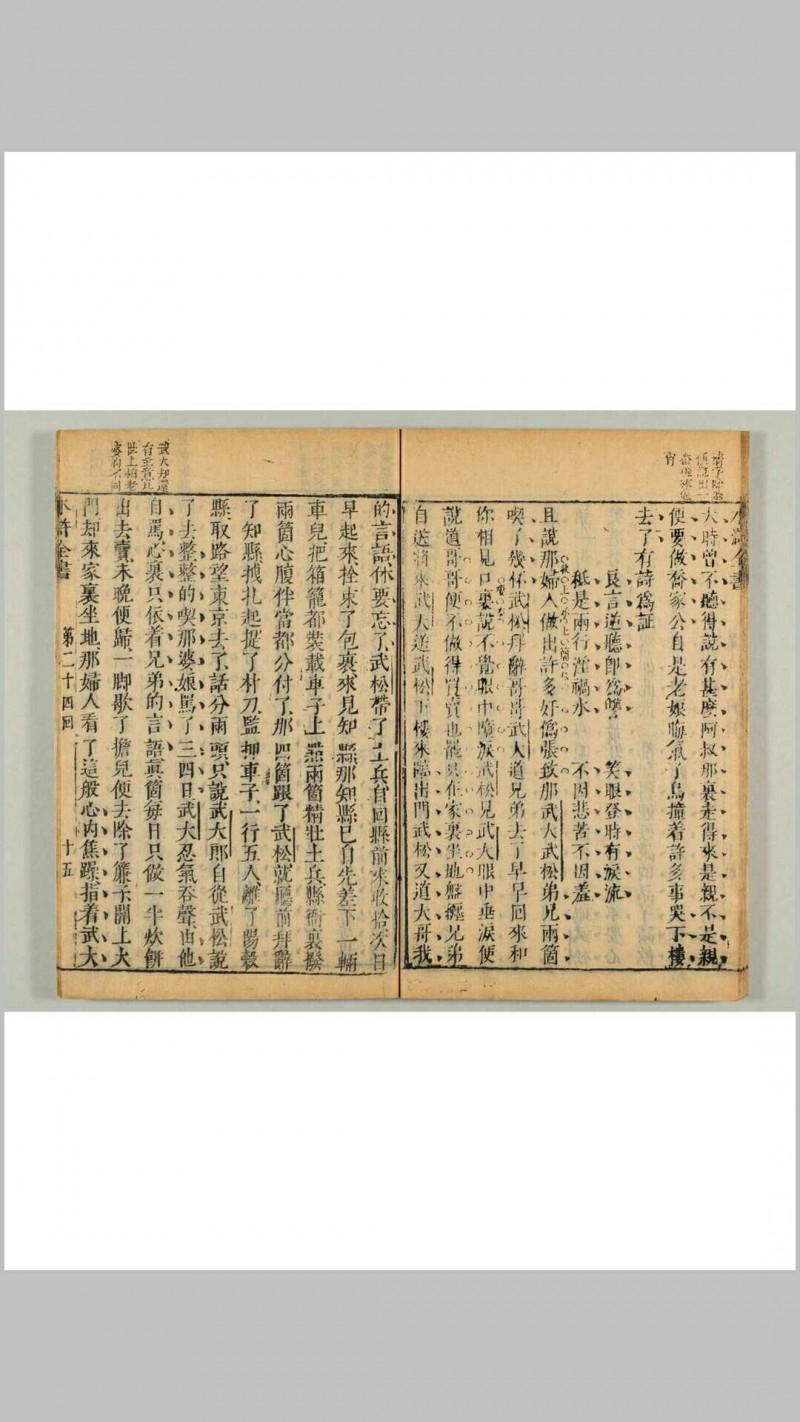 大時曾不聽得說有甚麽阿叔那裏走得來是親不是親
便要做喬家公自是老娘晦氣了鳥撞着許多事哭下樓
去了有詩爲証
良言逆聽卽爲讐　笑眼登時有淚流
秪是兩行淫禍水　不因悲苦不因羞
且說那婦人做出許多奸僞張致那武大武松弟兄兩箇
喫了幾杯武松拜辭哥哥武大道兄弟去了早早回來和
你相見口裏說不覺眼中墮淚武松見武大眼中垂淚便
說道哥哥便不做得買賣也罷只在家裏坐地盤纏兄弟
自送將來武大送武松下樓來臨出門武松又道大哥我
的言語休要忘了武松帶了土兵自回縣前來收拾次日
早起來拴束了包裹來見知縣那知縣已自先差下一輛
車兒把箱籠都裝載車子上點兩箇精壯土兵縣衙裏撥
兩箇心腹伴當都分付了那四箇跟了武松就廳前拜辭
了知縣拽扎起提了朴刀監押車子一行五人離了陽穀
縣取路望東京去了話分兩頭只說武大郎自從武松說
了去整整的喫那婆娘罵了三四日武大忍氣吞聲由他
自罵心裏只依着兄弟的言語眞箇每日只做一半炊餅
出去賣未晚便歸一脚歇了擔兒便去除了簾子關上大
門却來家裏坐地那婦人看了這般心內焦躁指着武大
水滸全書　第二十四回　十五
武大却還
有主意比
世上怕老
婆的不同